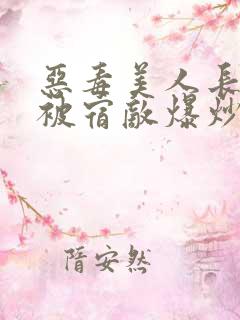 惡毒美人長
被宿敵爆炒
隋安然